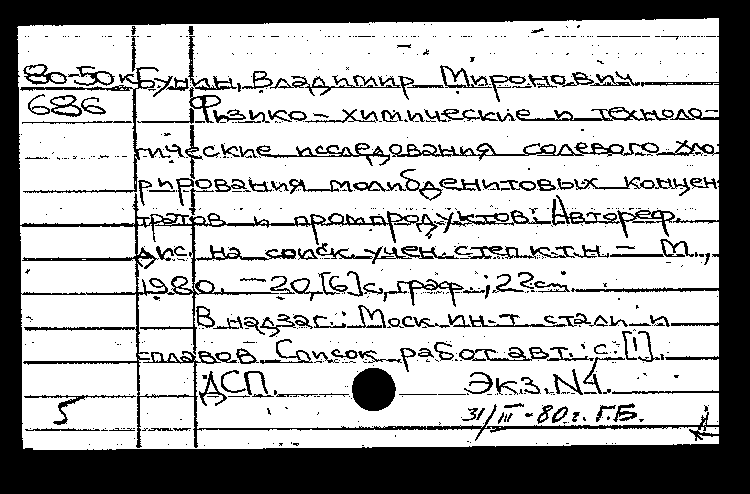 80-50к Бунин, Владимир Миронович.
686 Физико-химические и техноло-
гические исследования солевого хло-
рирования молибденитовых концен-
тратов и промпродуктов: Автореф.
дис. на соиск. учен. степ. к.т.н. - М.,
1980. - 20,[6]с, граф.; 22см
В надзаг.: Моск. ин-т стали и
сплавов. Список работ авт.: с.[1].
ДСП. Экз. N4.
5 31/III-80г. Г.Б.